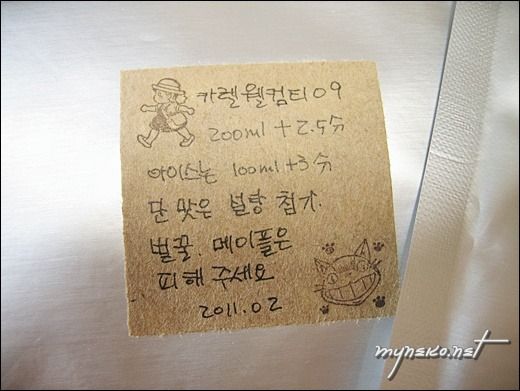 카렐 웰컴티 09
200ml + 2.5수
아이스는 100ml + 3수
단 맛은 설탕 첨가.
벌꿀. 메이플은
피해 주세요
2011.02
myneko.net